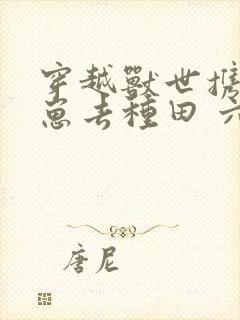 穿越獸世攜
崽去種田 六
唐尼